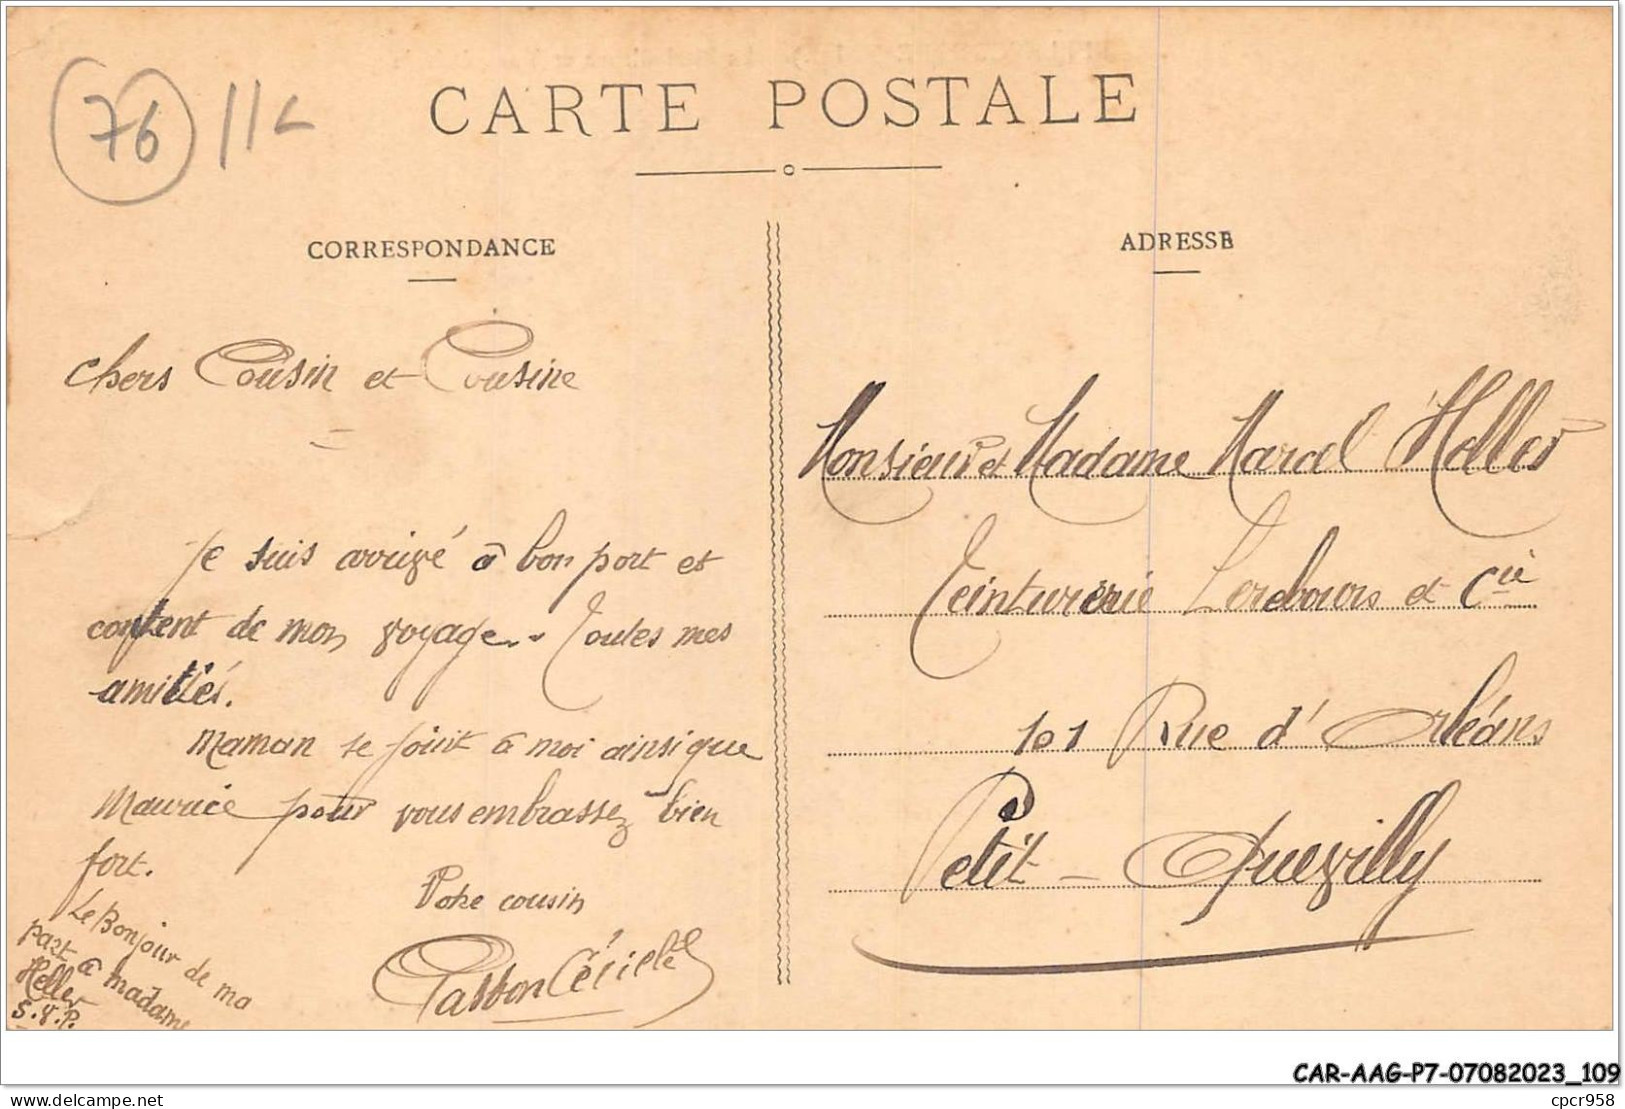 76 11
CARTE POSTALE
CORRESPONDANCE
chers Cousin et Cousine
Je suis arrivé à bon port et
content de mon voyage. Toutes mes
amitiés.
Maman se joint à moi ainsi que
Maurice pour vous embrassez bien
fort.
Votre cousin
Gaston
Le Bonjour de ma
part à madame
Heller
S.V.P.
ADRESSE
Monsieur et Madame Marcel Heller
Teinturérie Lerebours et Cie
101 Rue d'Orléans
Petit-Quevilly
CAR-AAG-P7-07082023_109
delcampe.net
cpcr958